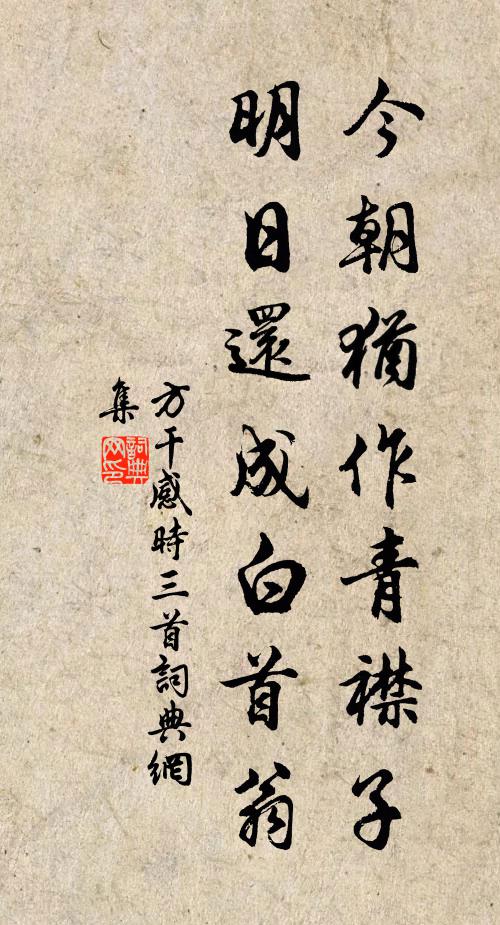 今朝猶作青襟子
明日還成白首翁
方干感時三首詞典網
集
詞典
网印